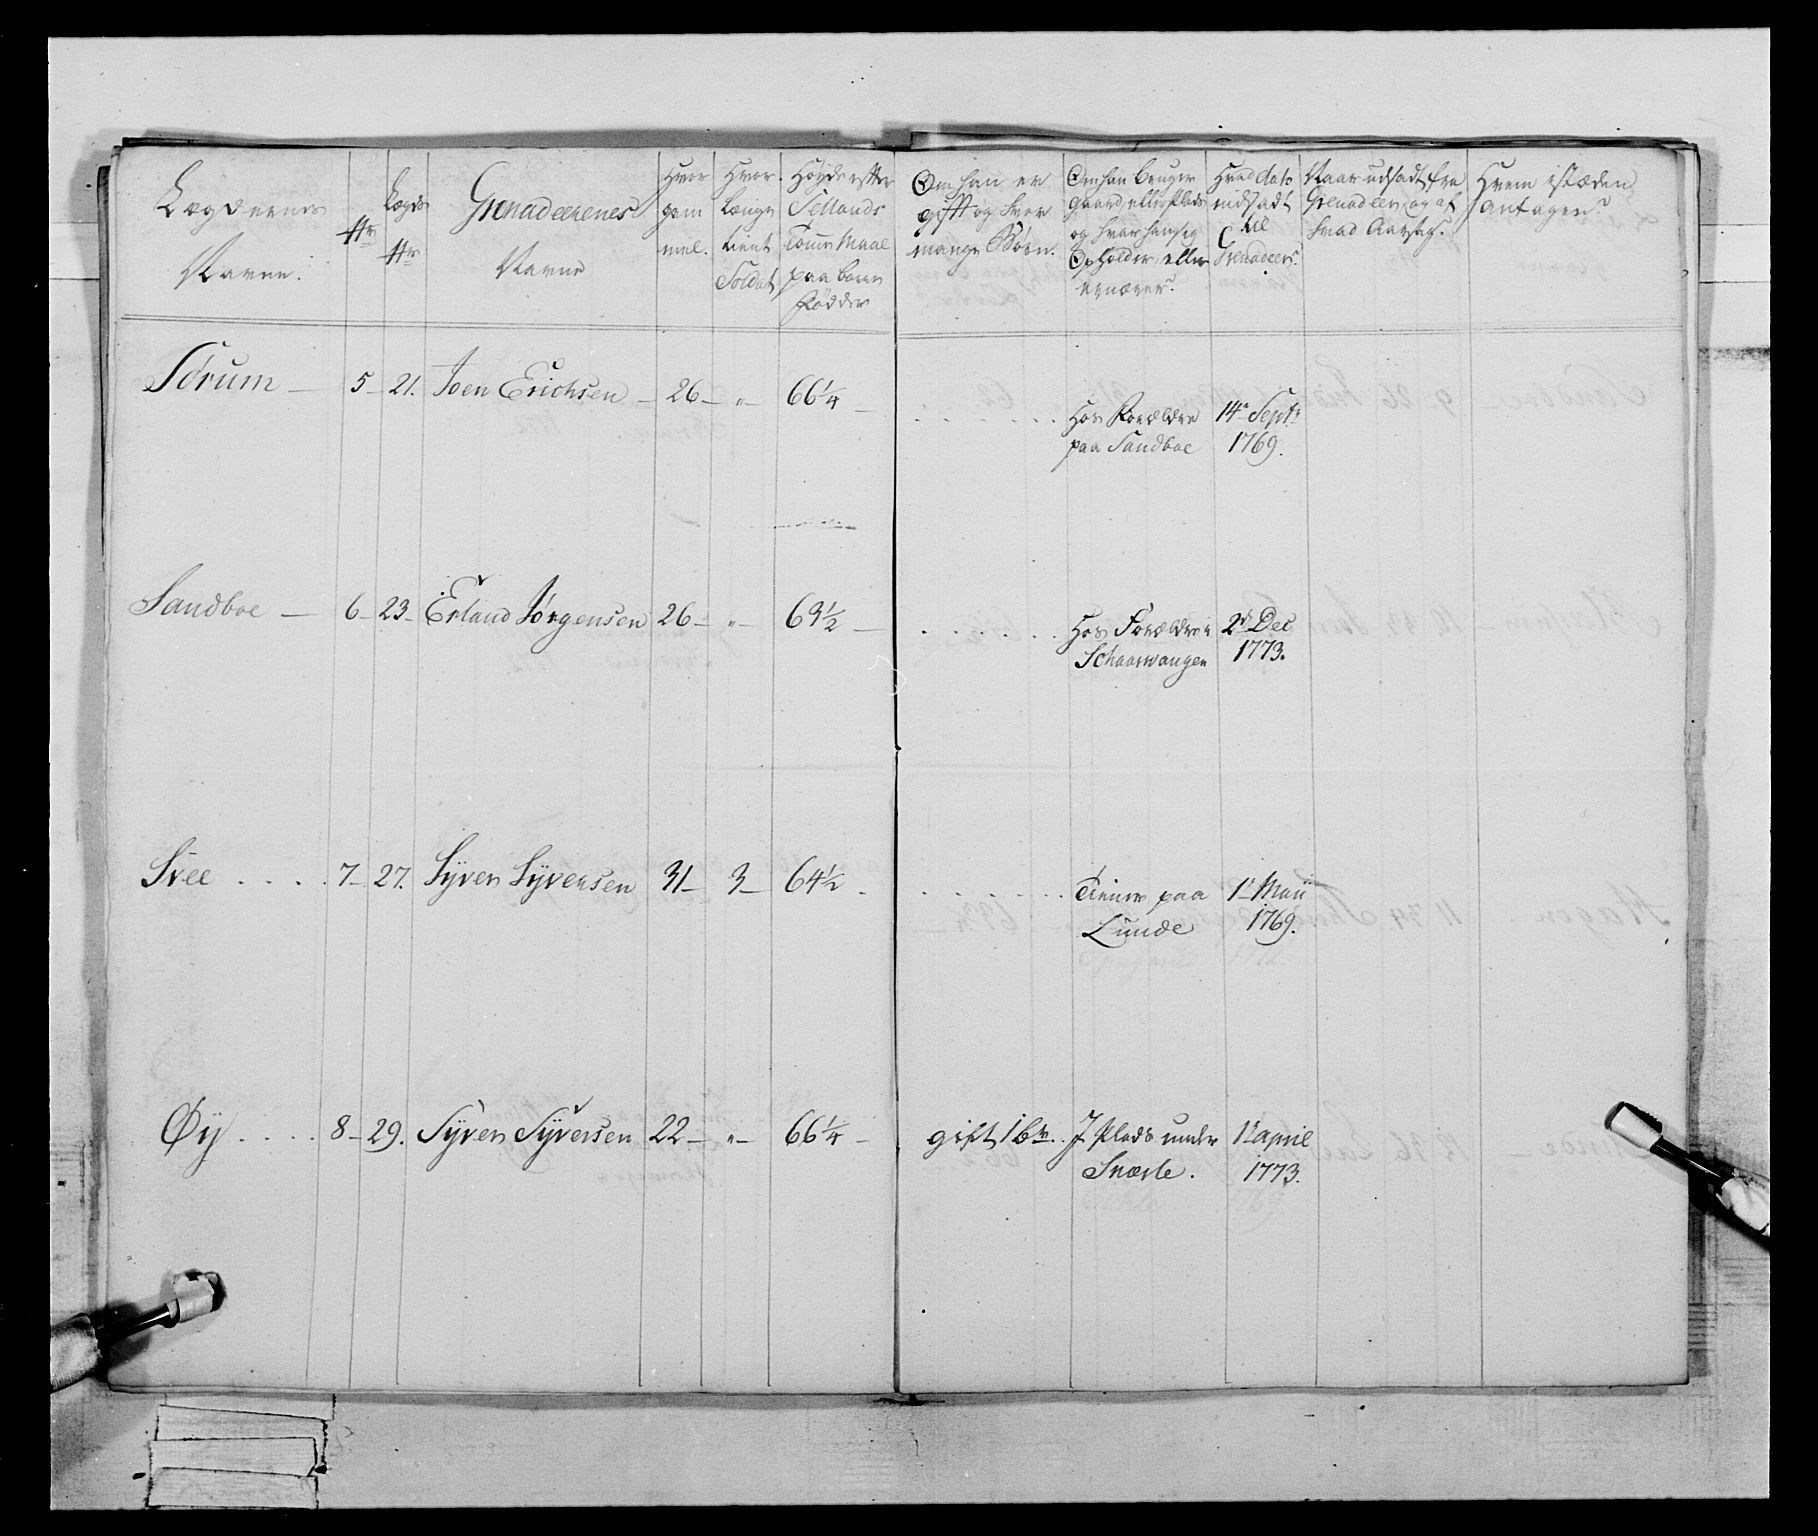 Lægdernes Navne.
Nr
Lægds Nr
Grenadeerenes Navne
Hvor gam mel.
Hvor længe tient Soldat
Høyde efter Sellands Tomme Maal paa bare Födder
Om han er gift og hvor mange Börn.
Om han bruger gaard eller Plads og hvor han sig opholder eller ernærer.
Hvad dato indsadt til Grenadeer.
Naar udsadt fra Grenadeer, og af hvad Aarsag.
Hvem isteden antagen.
Sörum — 5 — 21. Joen Erichsen — 26 — „ — 66¼ — . . . . . . Hos Forældre 14de Septr
paa Sandboe 1769.
Sandboe — 6 — 23 — Erland Jörgensen 26 — „ — 63½ — . . . . . . Hos Forældre i 2d Dec
Schaarvangen 1773.
Svee . . . . 7 — 27. Syver Syversen 31 — 3 — 64½ . . . . . . . Tiener paa 1t Maii
Lunde 1769.
Øy . . . . 8 — 29. Syver Syversen 22 — „ — 66¼ — gift 1 br. . J Plads under 1t april
Snærle. 1773.